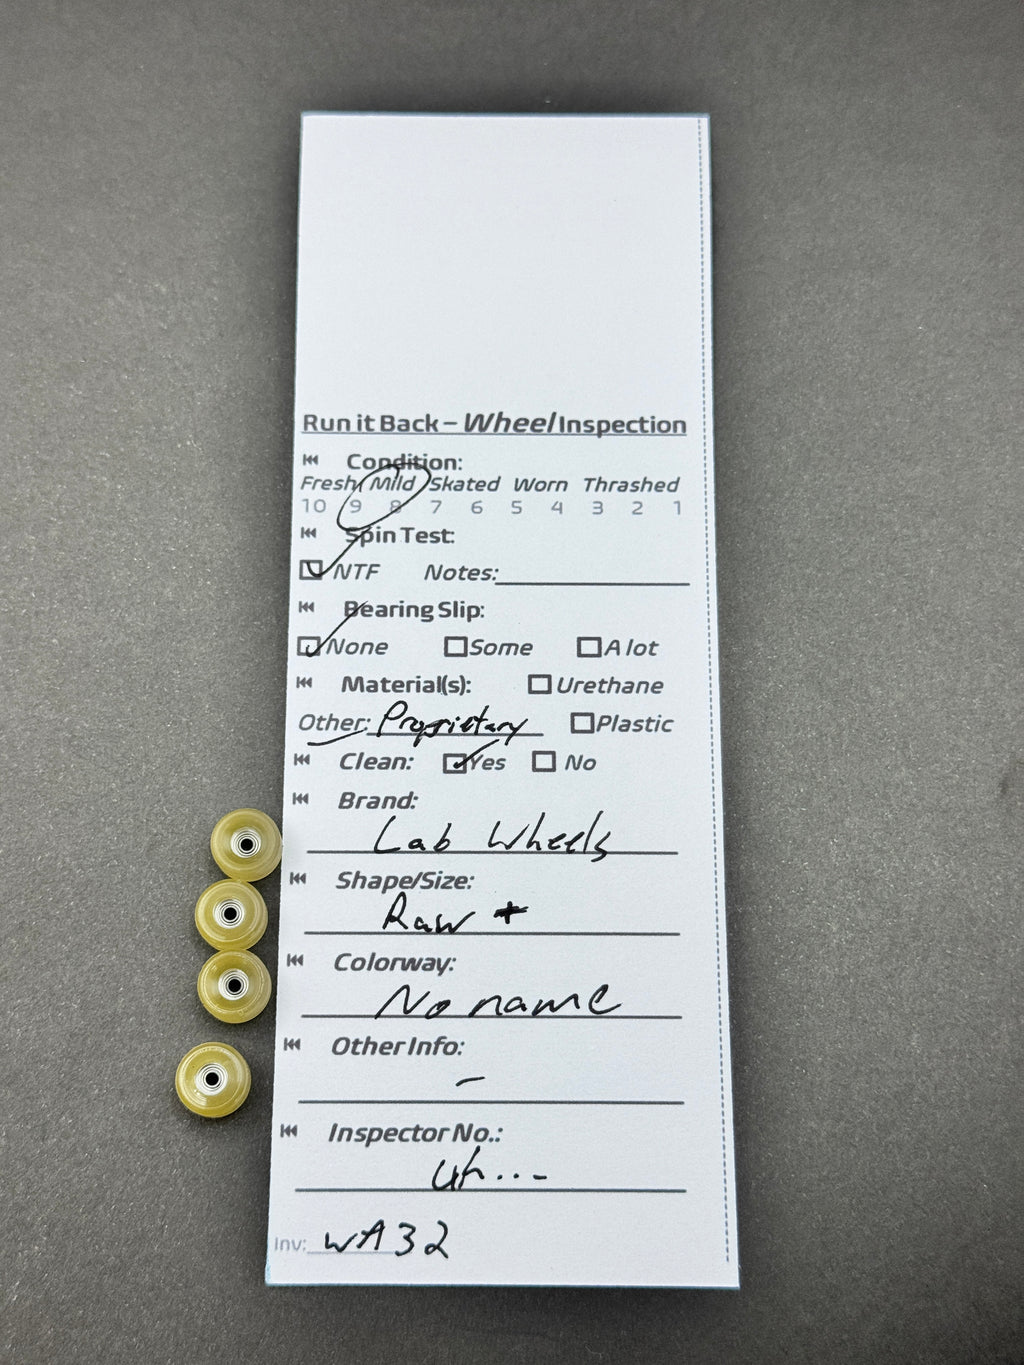 Run it Back – Wheel Inspection
Condition:
Fresh Mild Skated Worn Thrashed
10 9 8 7 6 5 4 3 2 1
Spin Test:
NTF Notes:
Bearing Slip:
None Some A lot
Material(s): Urethane
Other: Proprietary Plastic
Clean: Yes No
Brand:
Lab Wheels
Shape/Size:
Raw +
Colorway:
No name
Other Info:
–
Inspector No.:
uh...-
Inv: WA32